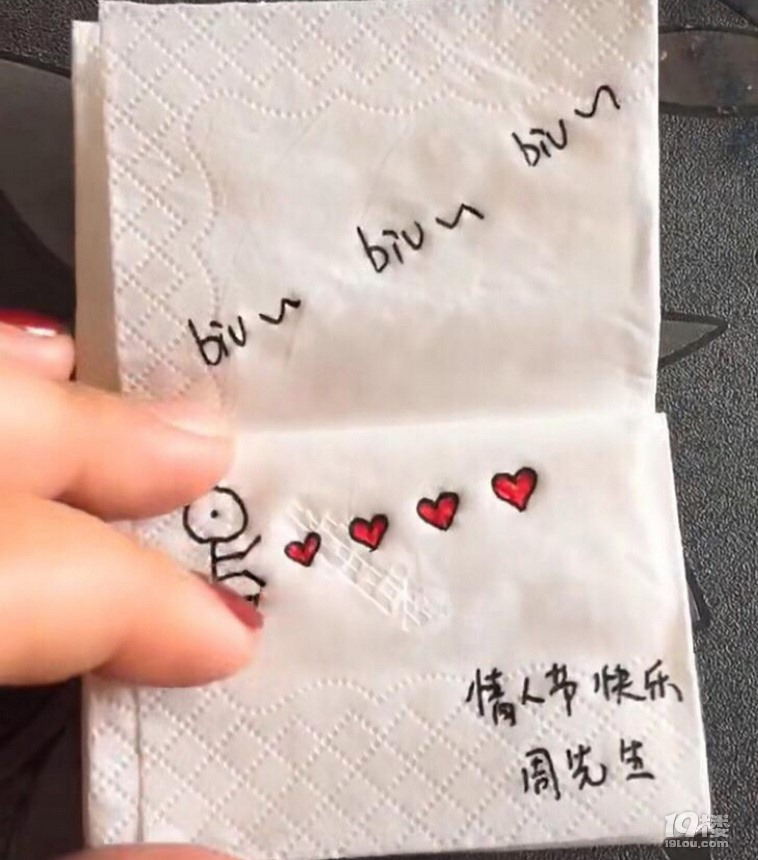 biu~
biu~
biu~
情人节快乐
周先生
19楼
19lou.com